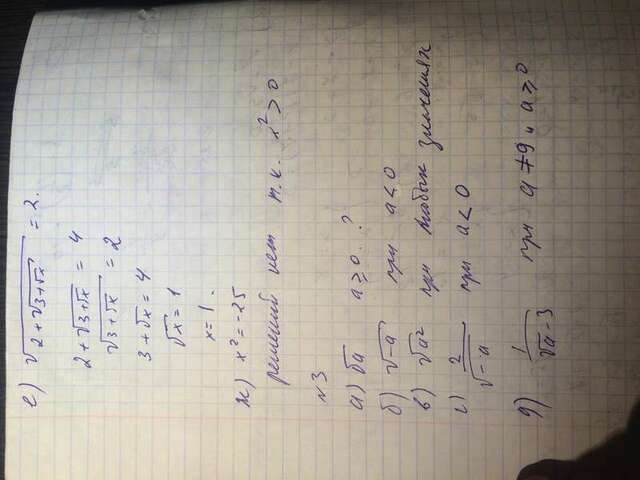 е) √(2+√(3+√x)) = 2.
2+√(3+√x) = 4
√(3+√x) = 2
3+√x = 4
√x = 1
x = 1.
ж) x² = -25
решений нет т.к. x² > 0
№3
а) √a a ≥ 0. ?
б) √-a при a < 0
в) √a² при любых значениях
г) 2/√-a при a < 0
д) 1/(√a - 3) при a ≠ 9 и a ≥ 0